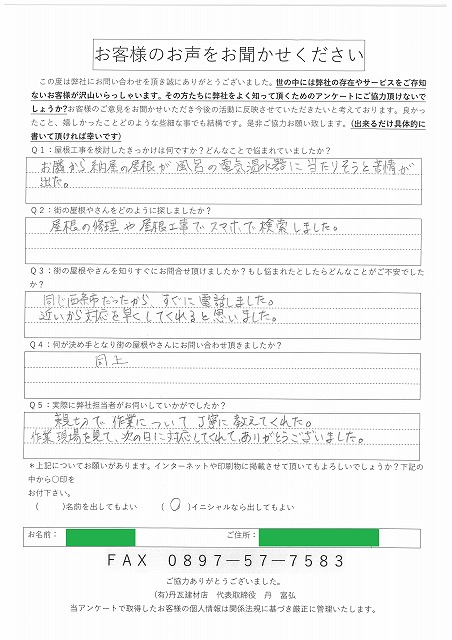 お客様のお声をお聞かせください
この度は弊社にお問い合わせを頂き誠にありがとうございました。世の中には弊社の存在やサービスをご存知
ないお客様が沢山いらっしゃいます。その方たちに弊社をよく知って頂くためのアンケートにご協力頂けないで
しょうか?お客様のご意見をお聞かせいただき今後の活動に反映させていただきたいと考えております。良かっ
たこと、嬉しかったことどのような些細な事でも結構です。是非ご協力お願い致します。(出来るだけ具体的に
書いて頂ければ幸いです)
Q1:屋根工事を検討したきっかけは何ですか?どんなことで悩まれていましたか?
お隣から納屋の屋根が風呂の電気温水器に当たりそうと苦情が
出た。
Q2:街の屋根やさんをどのように探しましたか?
屋根の修理や屋根工事でスマホで検索しました。
Q3:街の屋根やさんを知りすぐにお問合せ頂けましたか?もし悩まれたとしたらどんなことがご不安でした
か?
同じ西条市だったから、すぐに電話しました。
近いから対応を早くしてくれると思いました。
Q4:何が決め手となり街の屋根やさんにお問い合わせ頂きましたか?
同上
Q5:実際に弊社担当者がお伺いしていかがでしたか?
親切で作業について丁寧に教えてくれた。
作業現場を見て、次の日に対応してくれて、ありがとうございました。
*上記についてお願いがあります。インターネットや印刷物に掲載させて頂いてもよろしいでしょうか?下記の
中から〇印を
お付下さい。
( )名前を出してもよい ( ○ )イニシャルなら出してもよい
お名前: ご住所:
FAX 0897-57-7583
ご協力ありがとうございました。
(有)丹瓦建材店 代表取締役 丹 富弘
当アンケートで取得したお客様の個人情報は関係法規に基づき厳正に管理いたします。